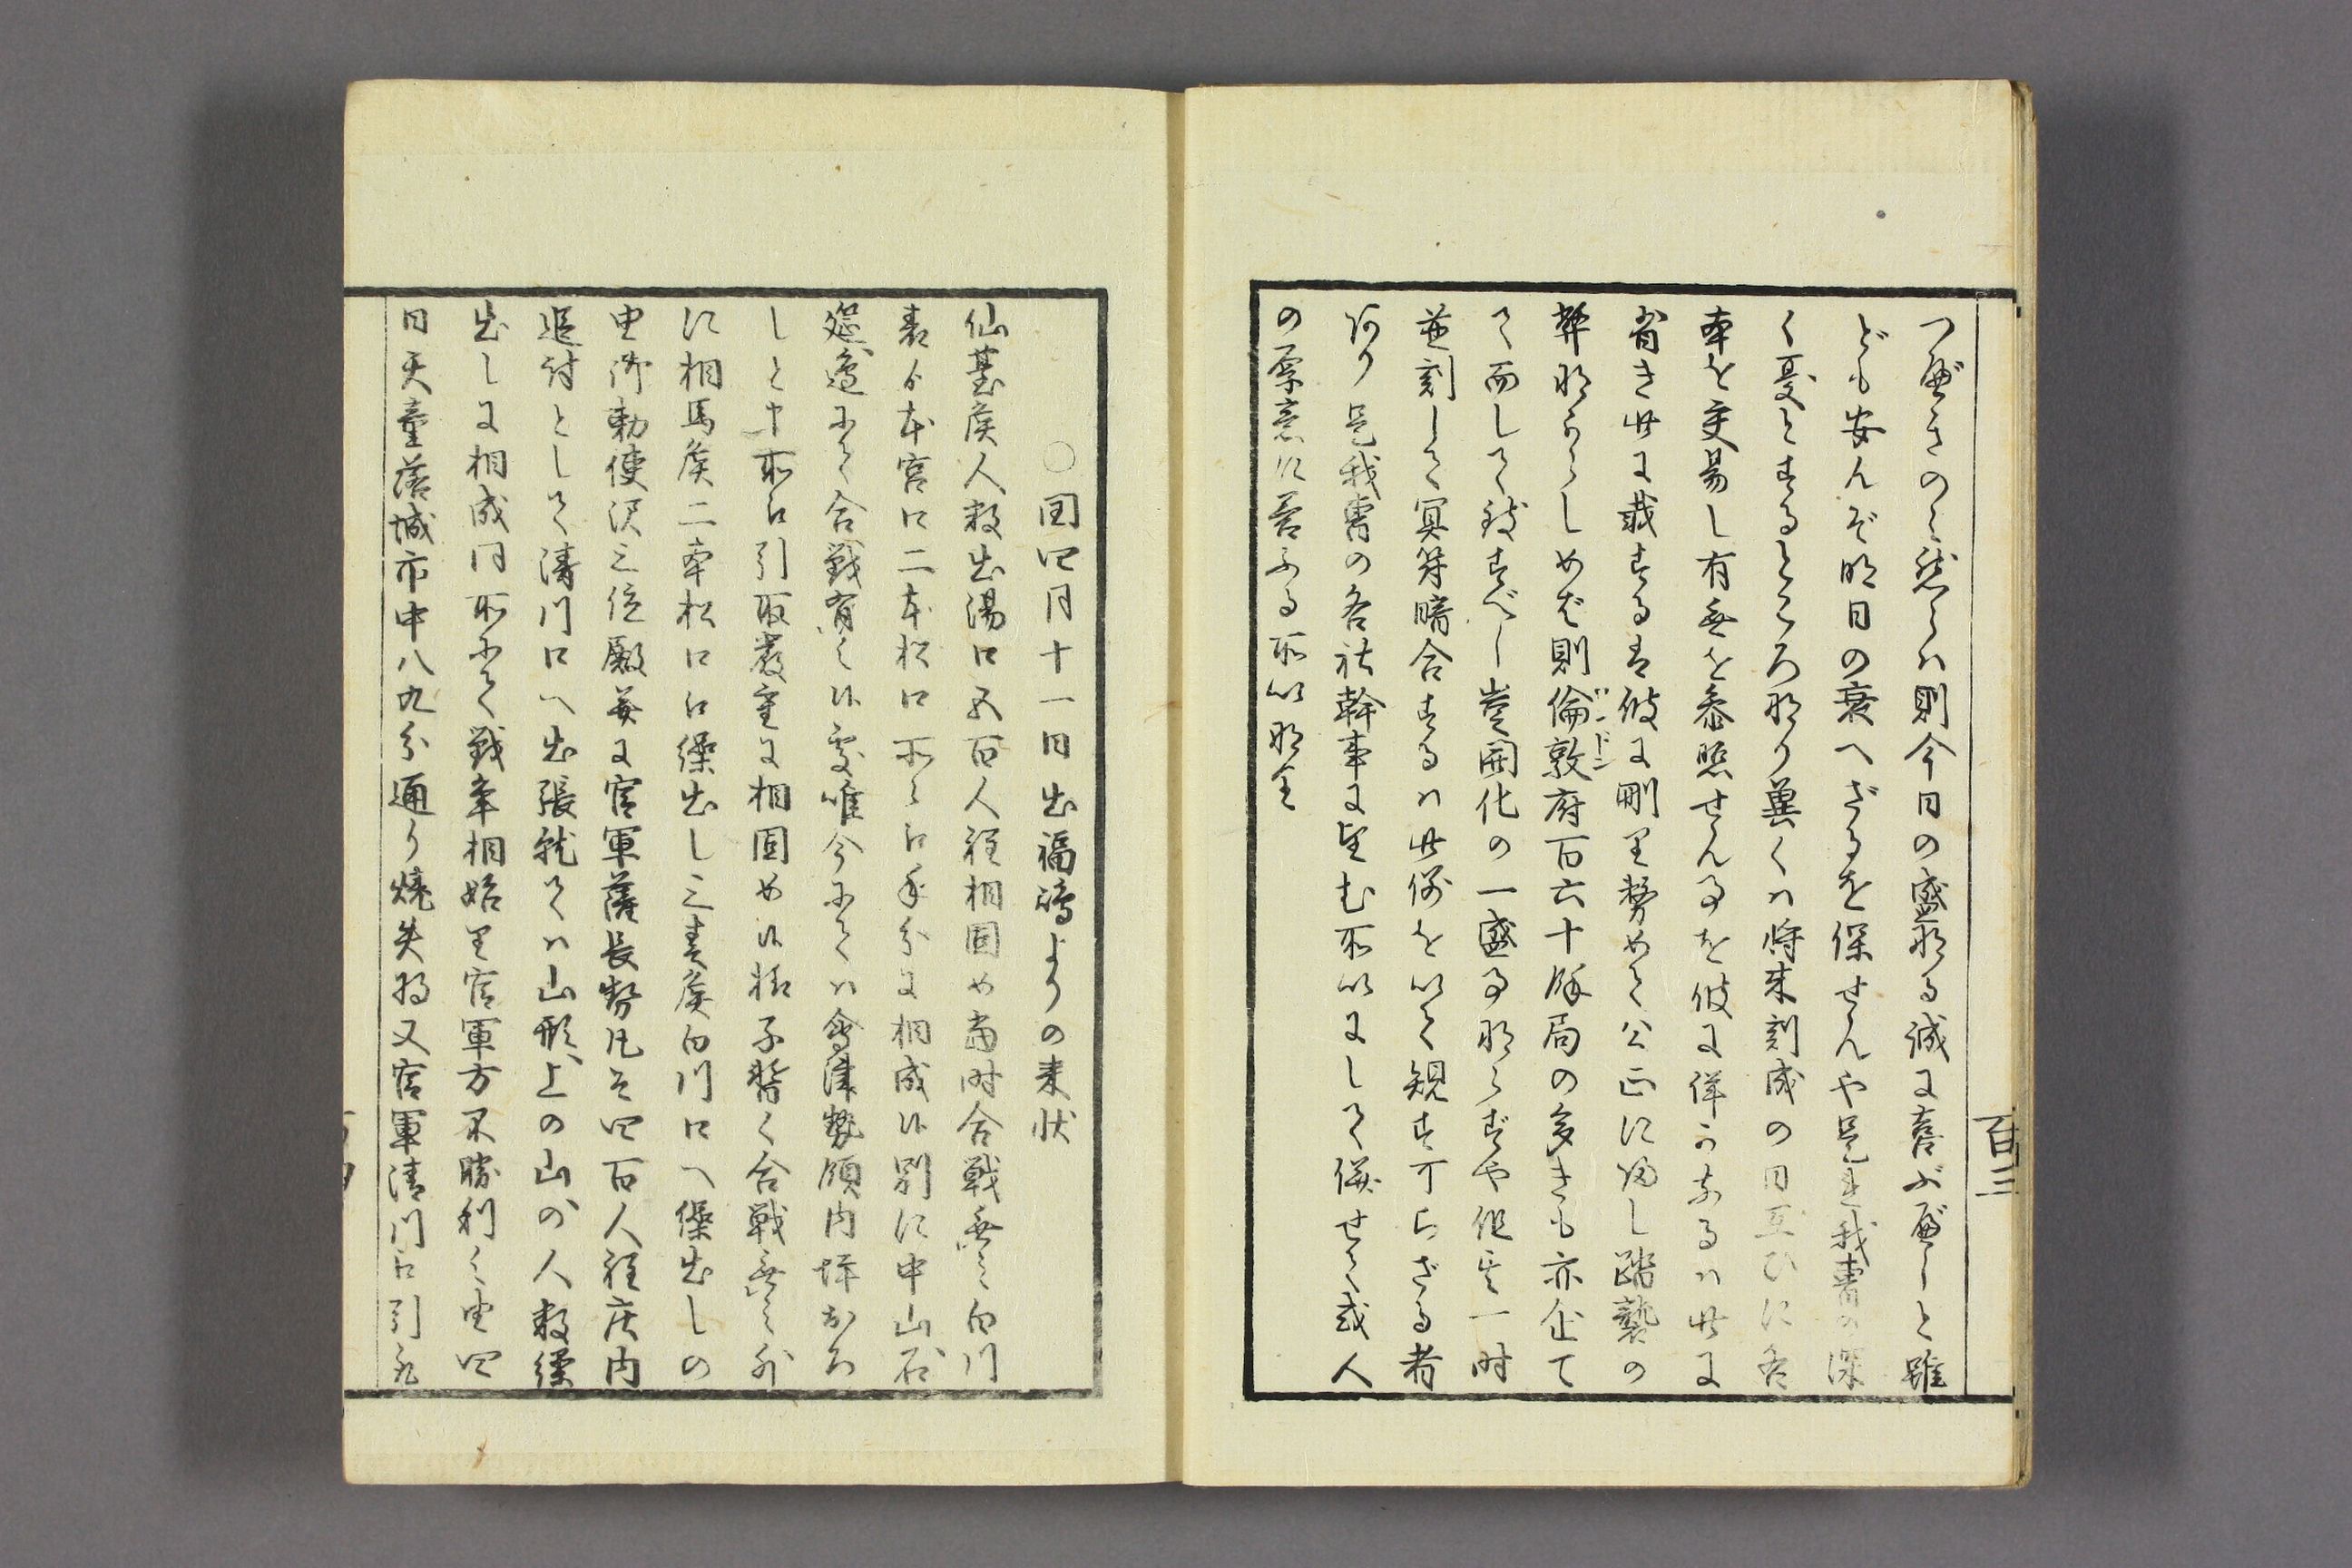 つ べきのミ然らハ則今日の盛なる誠に喜ぶべしと雖
ども安んぞ明日の衰へざるを保せんや是れ我曹の深
く憂とするところなり冀くハ将来刻成の日互ひに各
本を交易し有無を参照せん事を彼に詳かなるハ此に
省き此に載する者彼に刪り努めて公正に帰し蹈襲の
弊なからしめバ則倫敦府百六十余局の多きも亦企て
て而して致すべし豈開化の一盛事ならずや但其一時
並刻して冥符暗合するハ此例を以て規す可らざる者
なり是我曹の各社幹事に望む所以にして併せて或人
の厚意に答ふる所以なり
ロンドン
百三
○同四月十一日出福嶋よりの来状
仙䑓侯人数出湯口五百人程相固め当時合戦無之白川
表より本宮口二本松口所々江手分に相成候別に中山石
筵辺にて合戦有之候処唯今にてハ会津勢領内坪おろ
しと申所江引取厳重に相固め候様子暫く合戦無之外
に相馬侯二本松口江繰出し三春侯白川口へ繰出しの
由御勅使沢三位殿並に官軍薩長勢凡そ四百人程庄内
追討として清川口へ出張就てハ山形、上の山の人数繰
出しに相成同所にて戦争相始り官軍方不勝利之由四
日天童落城市中八九分通り焼失将又官軍清川江引取